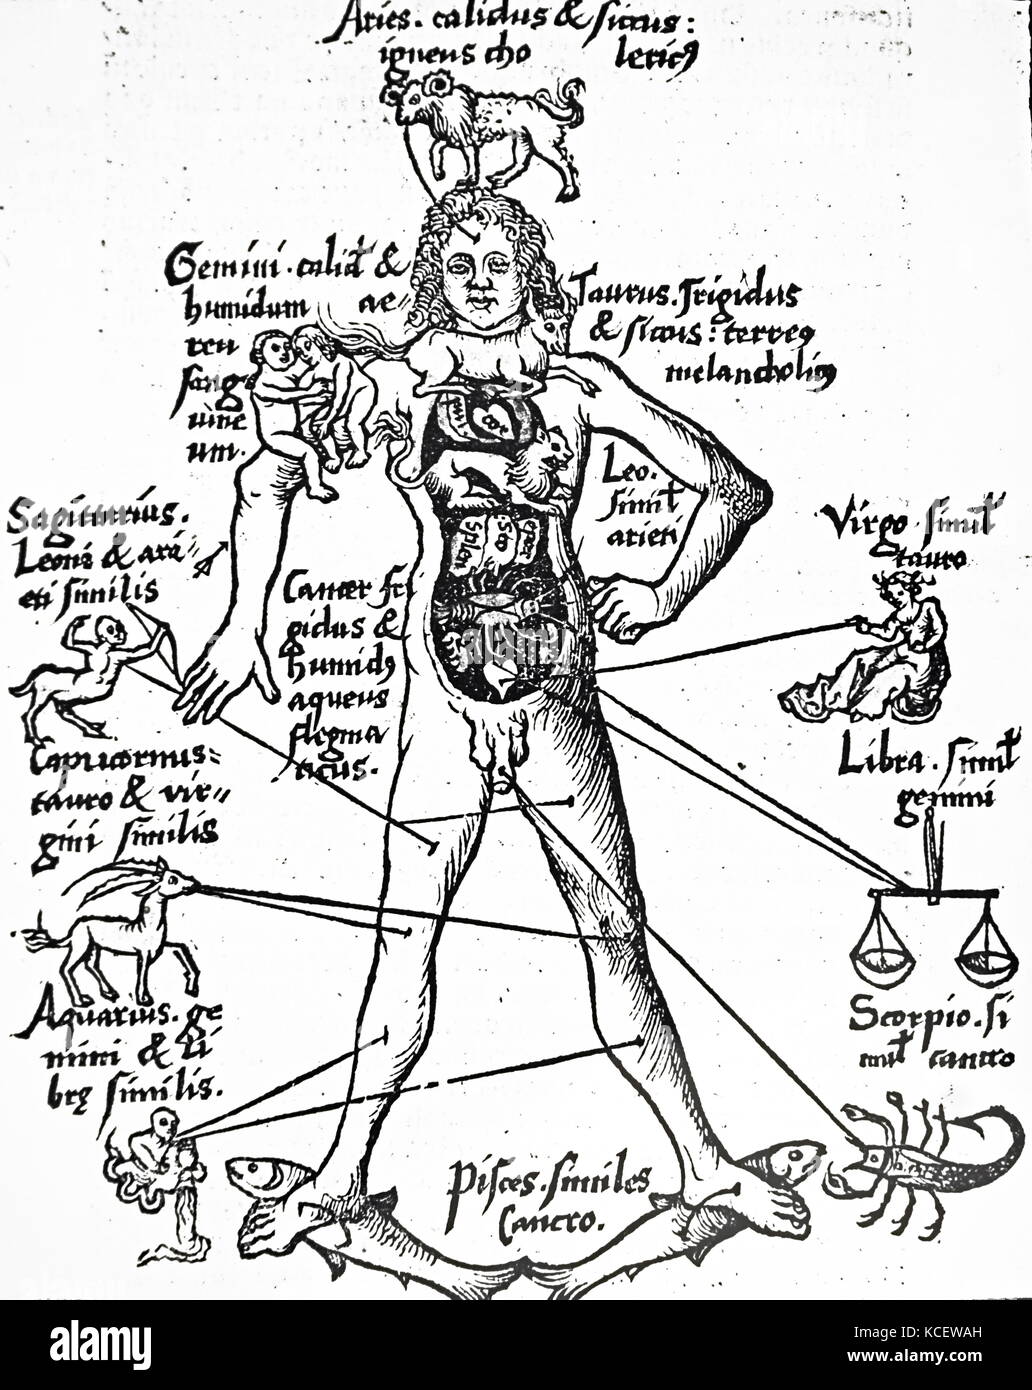 Aries. calidus & siccus:
igneus cho lericꝰ
Gemini. calid' &
humidum ae-
reu
sang
uine
um.
Taurus. frigidus
& siccus: terreꝰ
melancholicꝰ
cor
Leo.
simil'
arieti
Virgo. simil'
tauro
Sagittarius.
Leoni & ari
eti similis
splen
Cancer fri
gidus &
humidꝰ
aqueus
flegma
ticus.
Capricornus-
tauro & vir-
gini similis
Libra. simil'
gemini
Aquarius. ge
mini & li
brę similis.
Scorpio. si
mil' cancro
Pisces. similes
Cancro.
alamy stock photo
KCEWAH
www.alamy.com